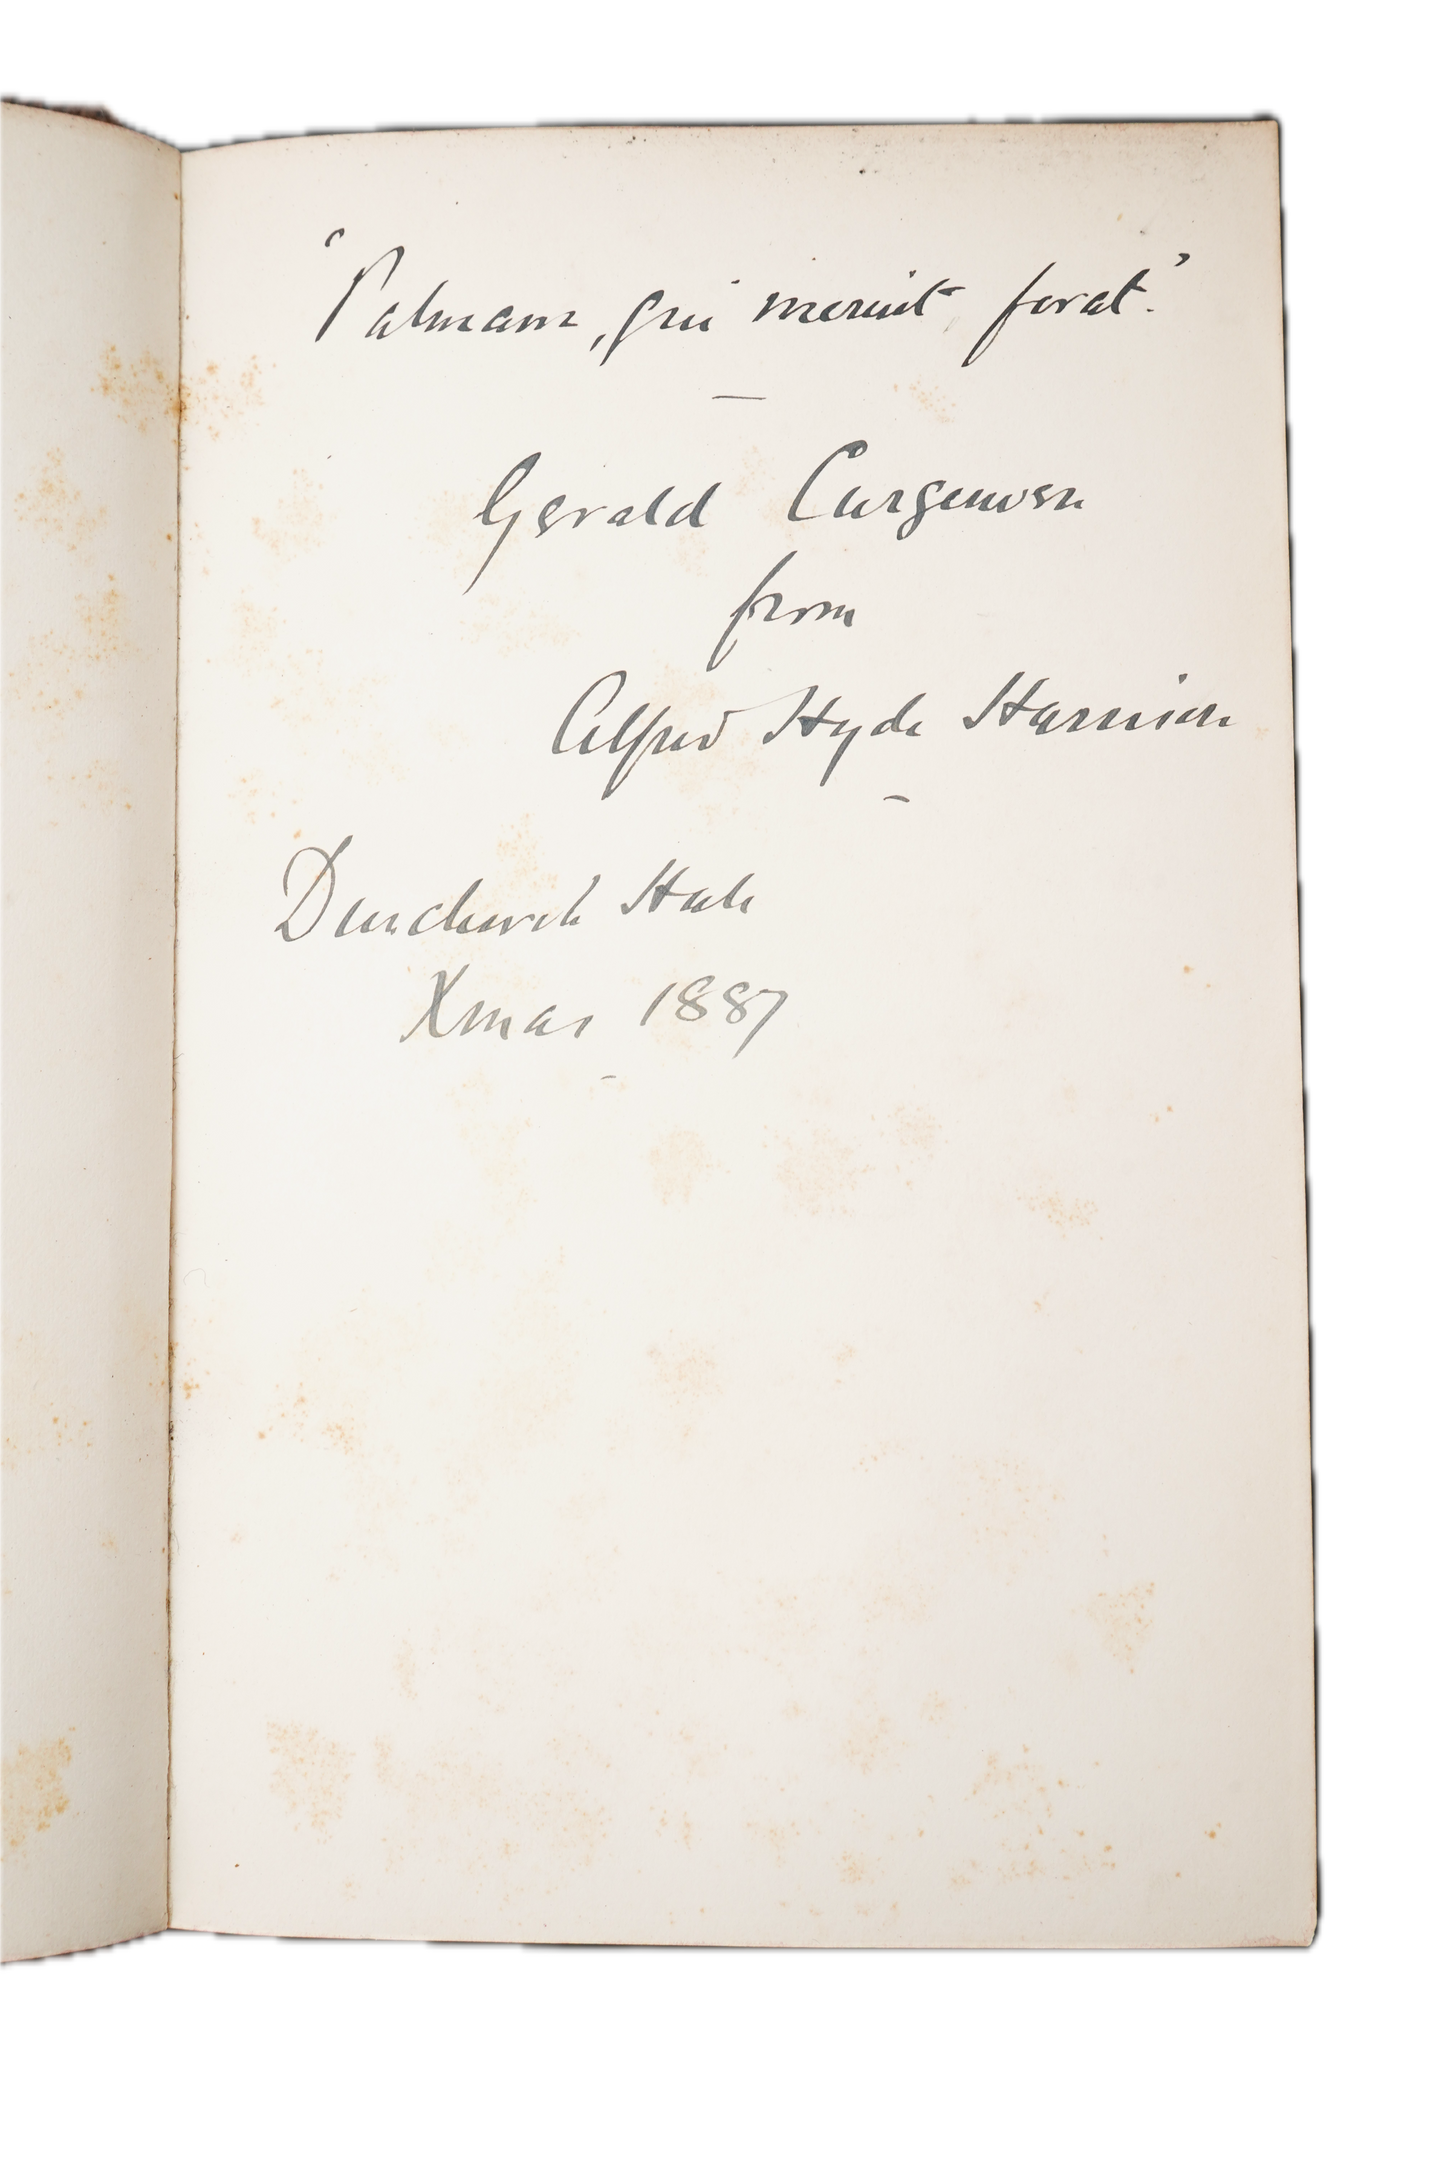 'Palmam, qui meruit ferat.'
Gerald Curgenven
from
Alfred Hyde Harrison
Dunchurch Hall
Xmas 1887